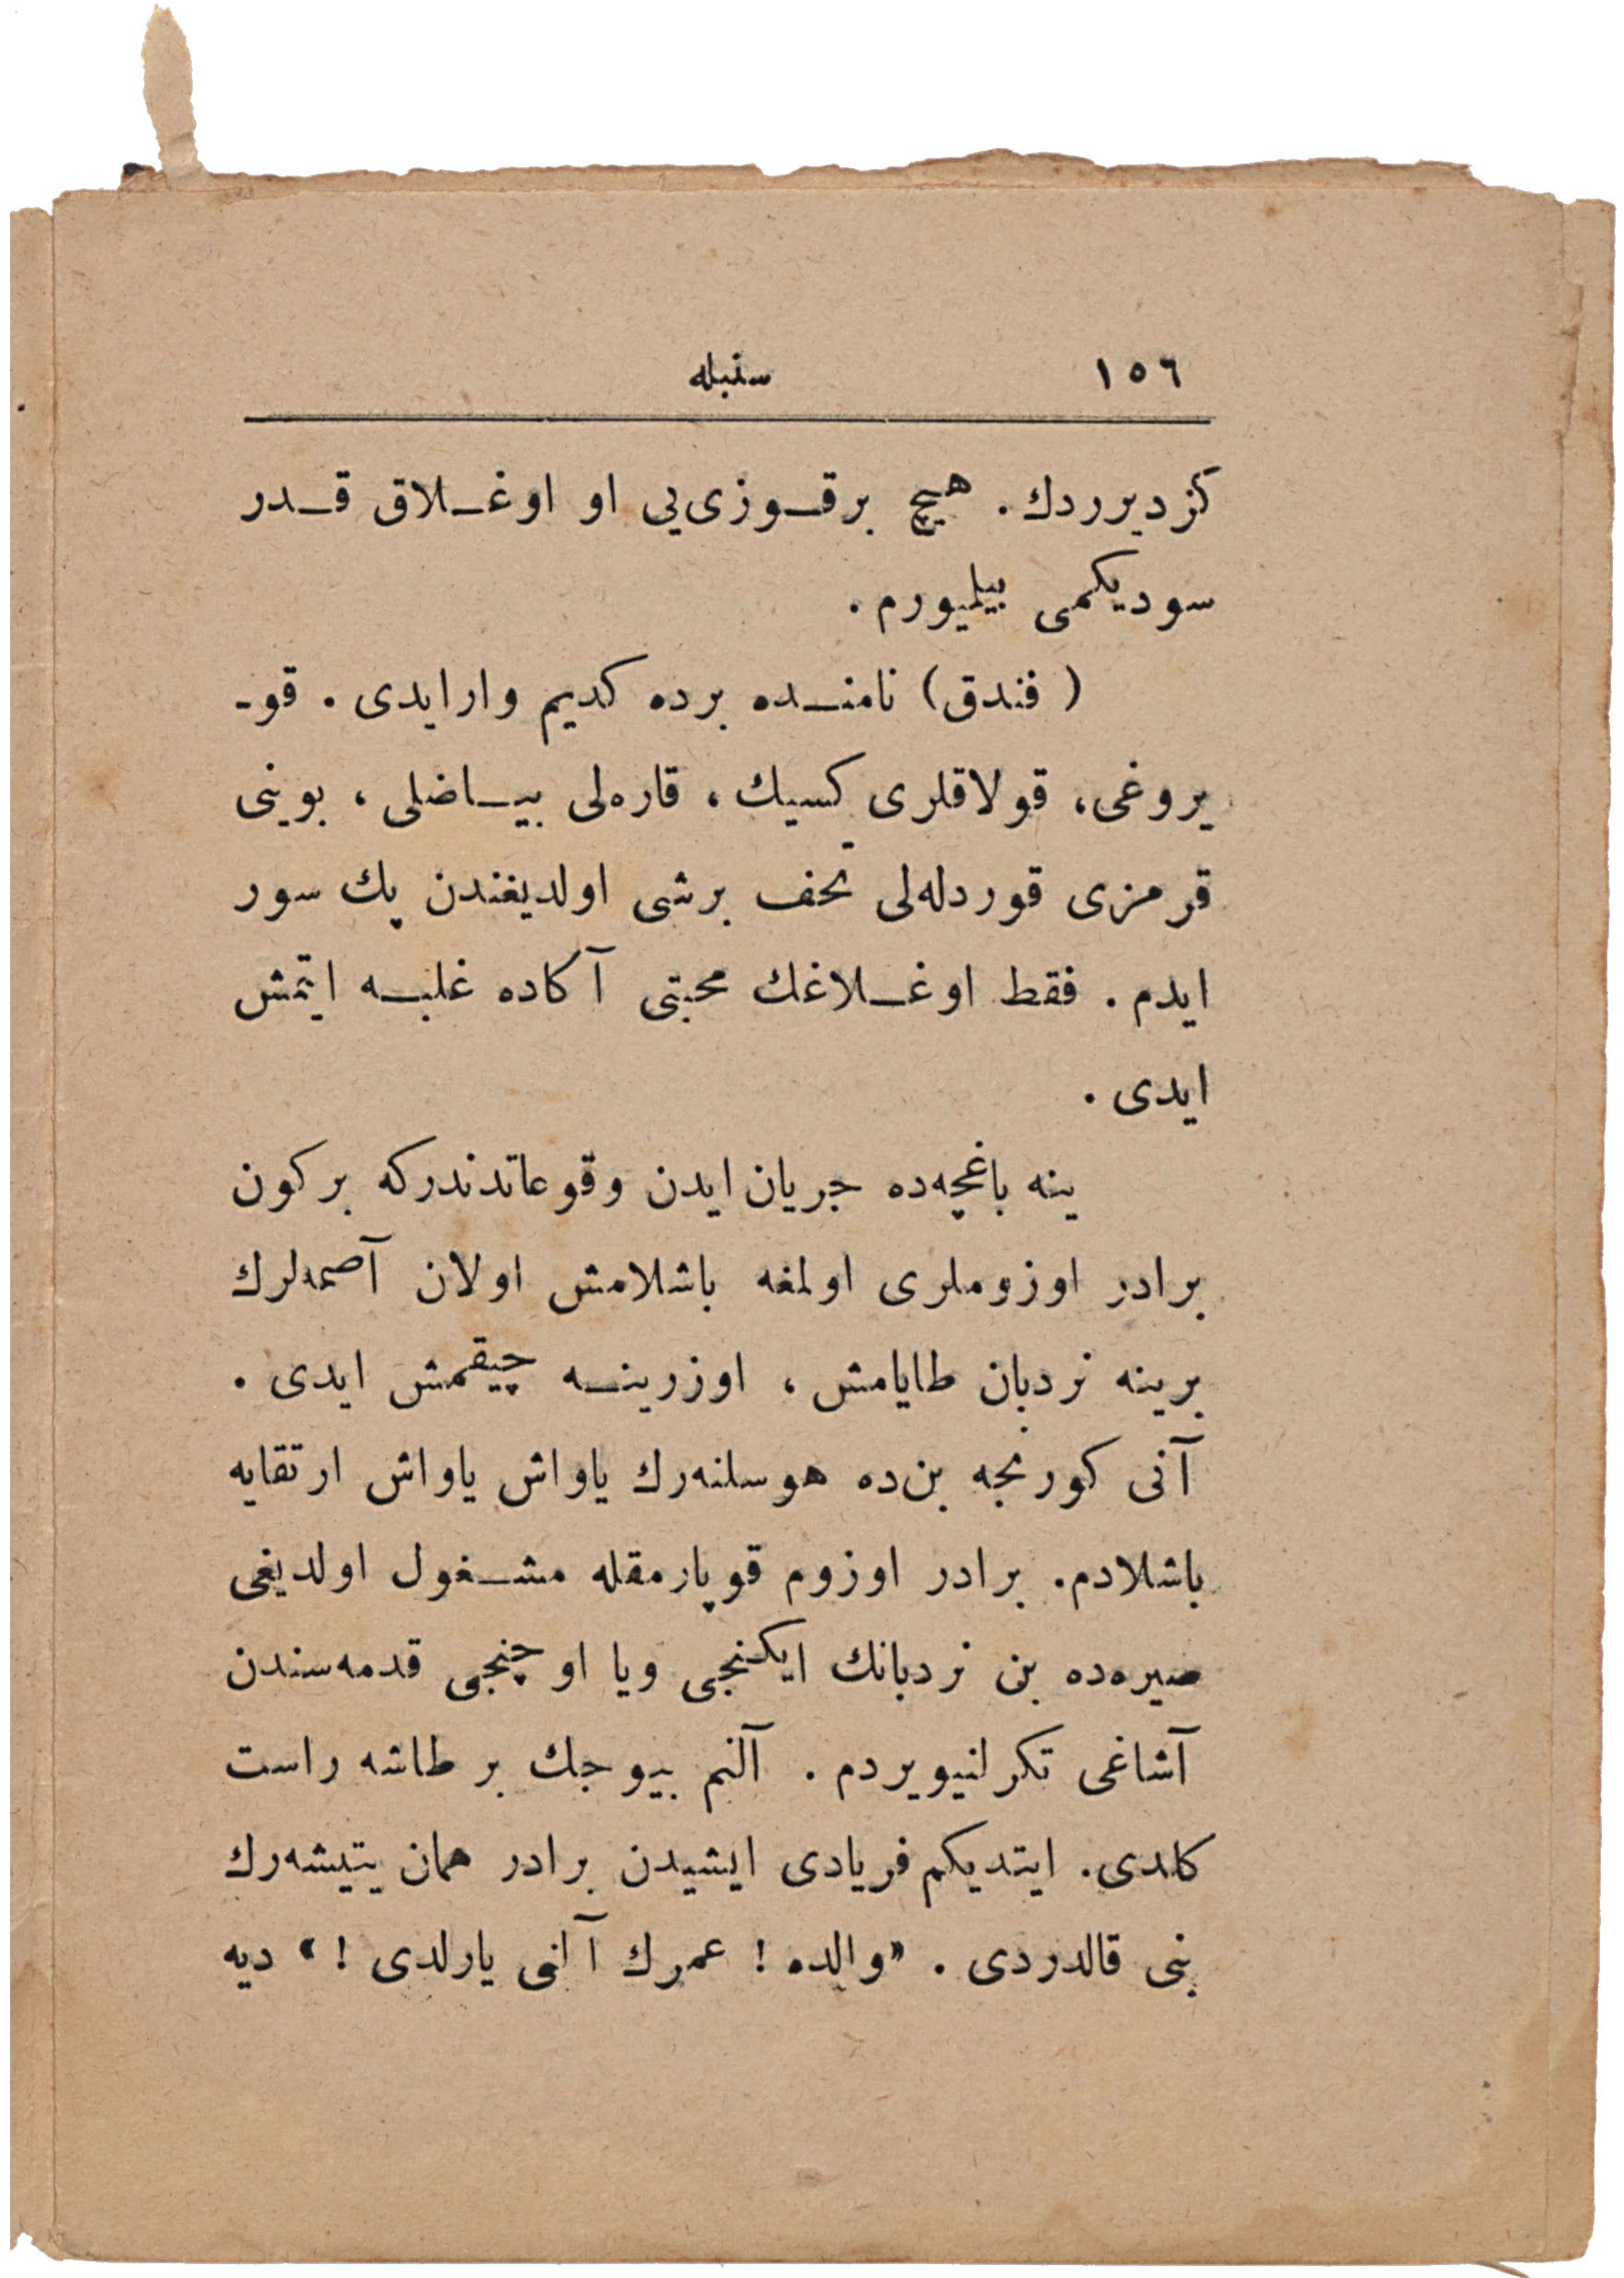 ١٥٦ سنبله
كزديرردك. هيچ برقوزى‌يى او اوغلاق قدر
سوديكمى بيليورم.
(فندق) نامنده برده كديم وارايدى. قو-
يروغى، قولاقلرى كسيك، قاره‌لى بياضلى، بوينى
قرمزى قوردله‌لى تحف برشى اولديغندن پك سور
ايدم. فقط اوغلاغك محبتى آكاده غلبه ايتمش
ايدى.
ينه باغچه‌ده جريان ايدن وقوعاتدندركه بركون
برادر اوزوملرى اولمغه باشلامش اولان آصمه‌لرك
برينه نردبان طايامش، اوزرينه چيقمش ايدى.
آنى كورنجه بن‌ده هوسلنه‌رك ياواش ياواش ارتقايه
باشلادم. برادر اوزوم قوپارمقله مشغول اولديغى
صيره‌ده بن نردبانك ايكنجى ويا اوچنجى قدمه‌سندن
آشاغى تكرلنيويردم. آلنم بيوجك بر طاشه راست
كلدى. ايتديكم فريادى ايشيدن برادر همان يتيشه‌رك
بنى قالدردى. «والده! عمرك آلنى يارلدى!» ديه